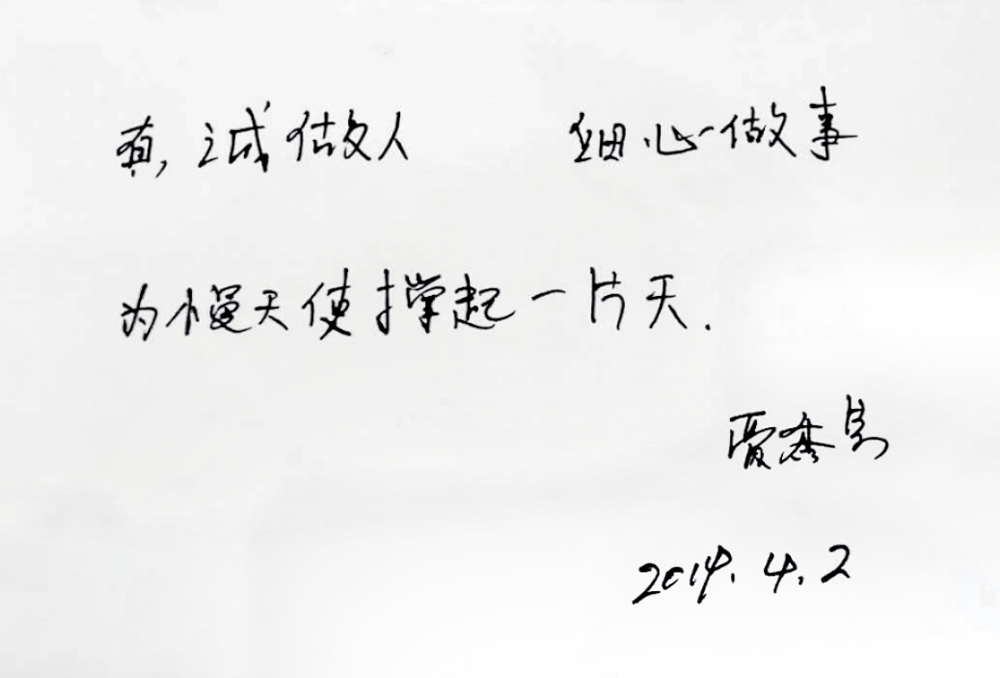 真诚做人 细心做事
为慢天使撑起一片天.
贾
4.2